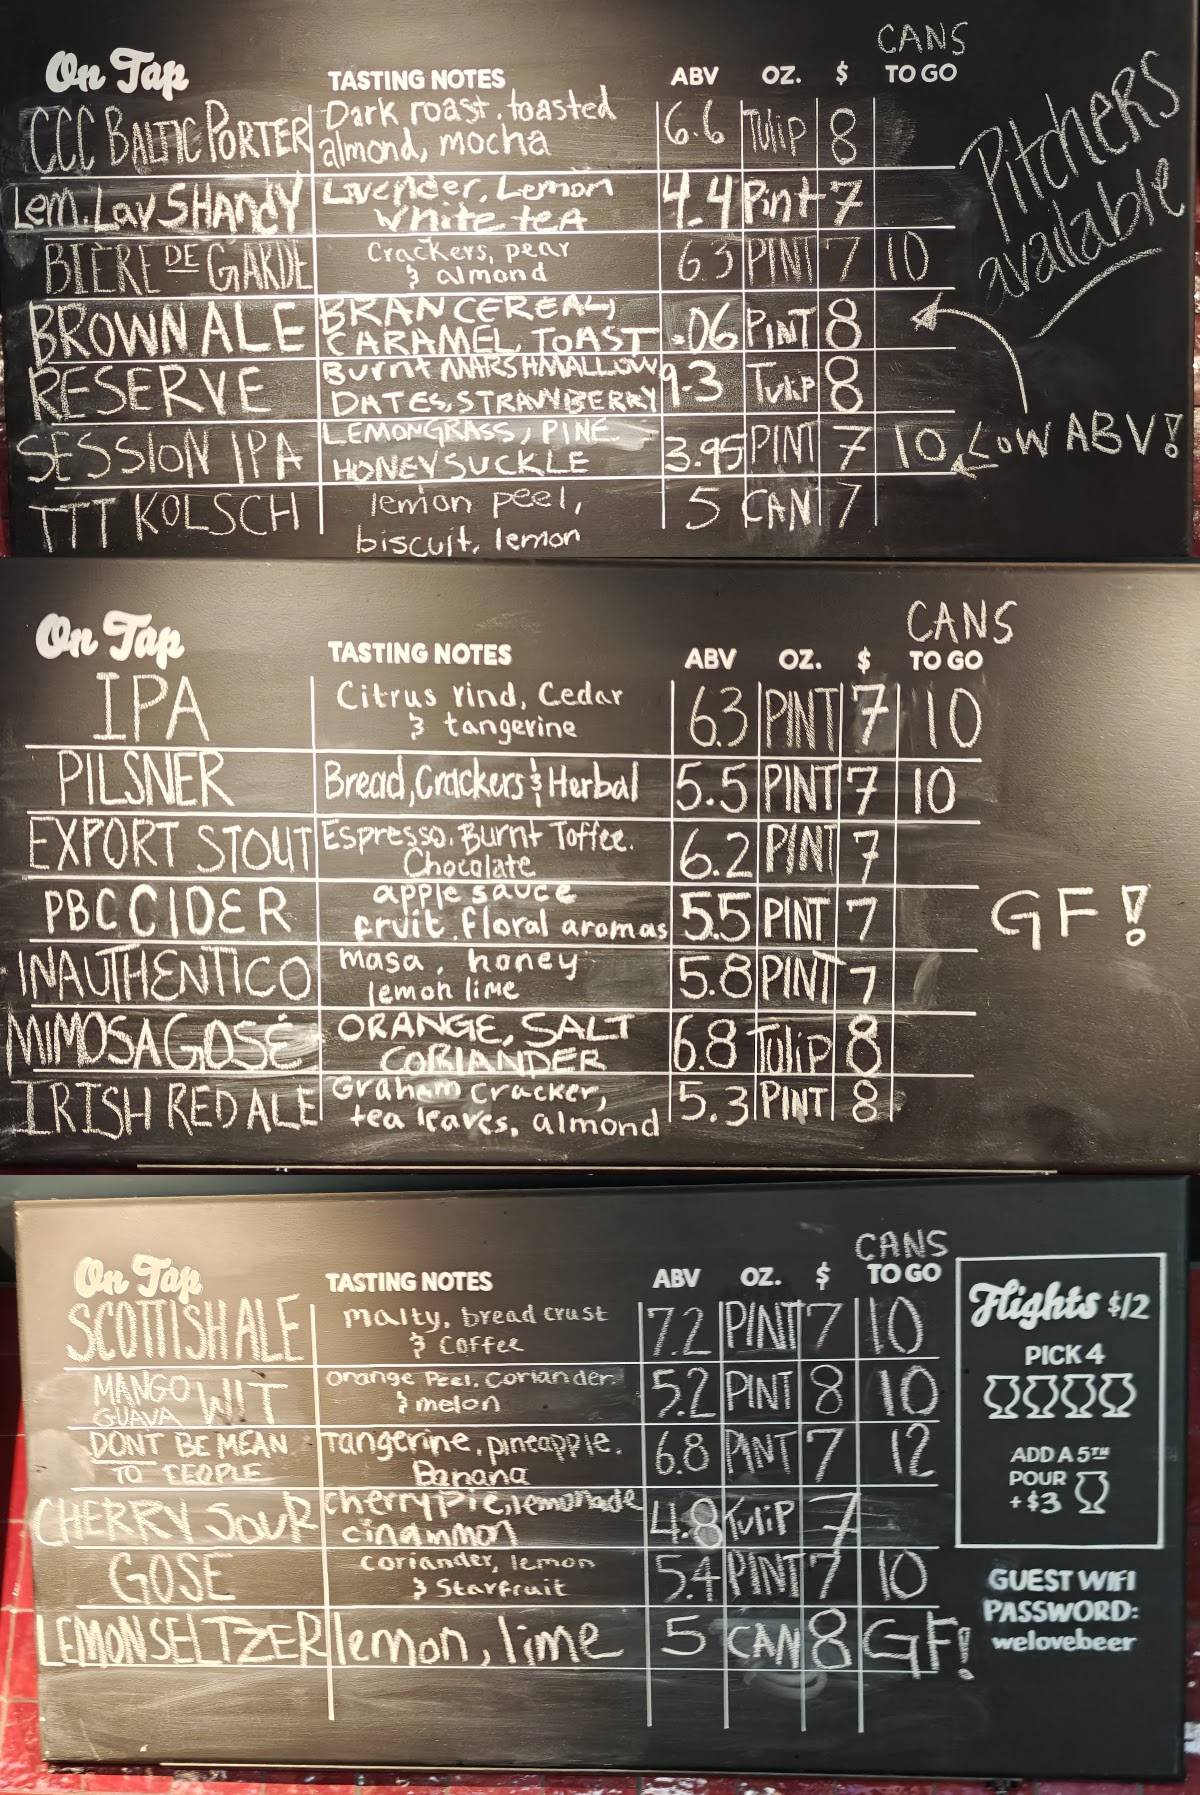 CANS
On Tap TASTING NOTES ABV OZ. $ TO GO
CCC BALTIC PORTER Dark roast, toasted almond, mocha 6.6 Tulip 8
Lem. Lav SHANdY Lavender, Lemon White teA 4.4 Pint 7
BIÈRE DE GARDE Crackers, pear & almond 6.3 PINT 7 10
BROWN ALE BRAN CEREAL, CARAMEL, TOAST .06 PINT 8
RESERVE Burnt MARSHMALLOW DATES, STRAWBERRY 9.3 Tulip 8
SESSION IPA LEMONGRASS, PINE HONEYSUCKLE 3.95 PINT 7 10
TTT KOLSCH lemon peel, biscuit, lemon 5 CAN 7
Pitchers
available
LOW ABV!
CANS
On Tap TASTING NOTES ABV OZ. $ TO GO
IPA Citrus rind, Cedar & tangerine 6.3 PINT 7 10
PILSNER Bread, Crackers & Herbal 5.5 PINT 7 10
EXPORT STOUT Espresso, Burnt Toffee, Chocolate 6.2 PINT 7
PBC CIDER apple sauce fruit, floral aromas 5.5 PINT 7 GF!
INAUTHENTICO masa, honey lemon lime 5.8 PINT 7
MIMOSA GOSE ORANGE, SALT CORIANDER 6.8 Tulip 8
IRISH RED ALE Graham cracker, tea leaves, almond 5.3 PINT 8
CANS
On Tap TASTING NOTES ABV OZ. $ TO GO
SCOTTISH ALE malty, bread crust & coffee 7.2 PINT 7 10
MANGO GUAVA WIT Orange Peel, Coriander & melon 5.2 PINT 8 10
DONT BE MEAN TO PEOPLE Tangerine, pineapple, Banana 6.8 PINT 7 12
CHERRY SOUR cherry pie, lemonade cinammon 4.8 TuliP 7
GOSE coriander, lemon & Starfruit 5.4 PINT 7 10
LEMON SELTZER lemon, lime 5 CAN 8 GF!
Flights $12
PICK 4
ADD A 5TH
POUR
+$3
GUEST WIFI
PASSWORD:
welovebeer